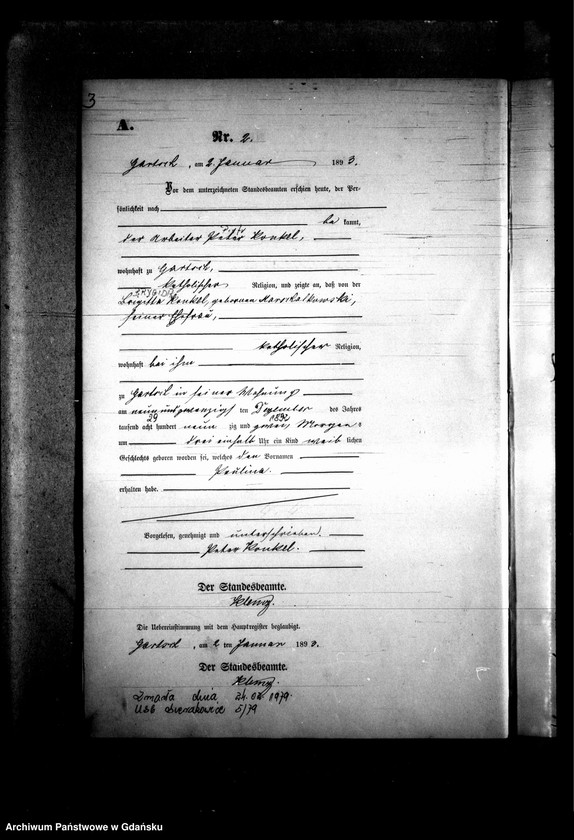 3
A.
Nr. 2.
am 2. Januar 1893.
Vor dem unterzeichneten Standesbeamten erschien heute, der Per-
sönlichkeit nach
be kannt,
der Arbeiter Peter Konkel,
wohnhaft zu
katholischer Religion, und zeigte an, daß von der
BRYGIDA
Brigitta Konkel, geborenen Marschalkowski,
seiner Ehefrau,
katholischer Religion,
wohnhaft bei ihm
zu in seiner Wohnung
am neun und zwanzigsten Dezember des Jahres
29 1892
tausend acht hundert neun zig und zwei Morgens
um drei einhalb Uhr ein Kind weib lichen
Geschlechts geboren worden sei, welches den Vornamen
Paulina
erhalten habe.
Vorgelesen, genehmigt und unterschrieben.
Peter Konkel.
Der Standesbeamte.
Die Uebereinstimmung mit dem Hauptregister beglaubigt.
am 2 ten Januar 1893.
Der Standesbeamte.
Zmarła dnia 24.02.1979.
USC Sierakowice 5/79
Archiwum Państwowe w Gdańsku